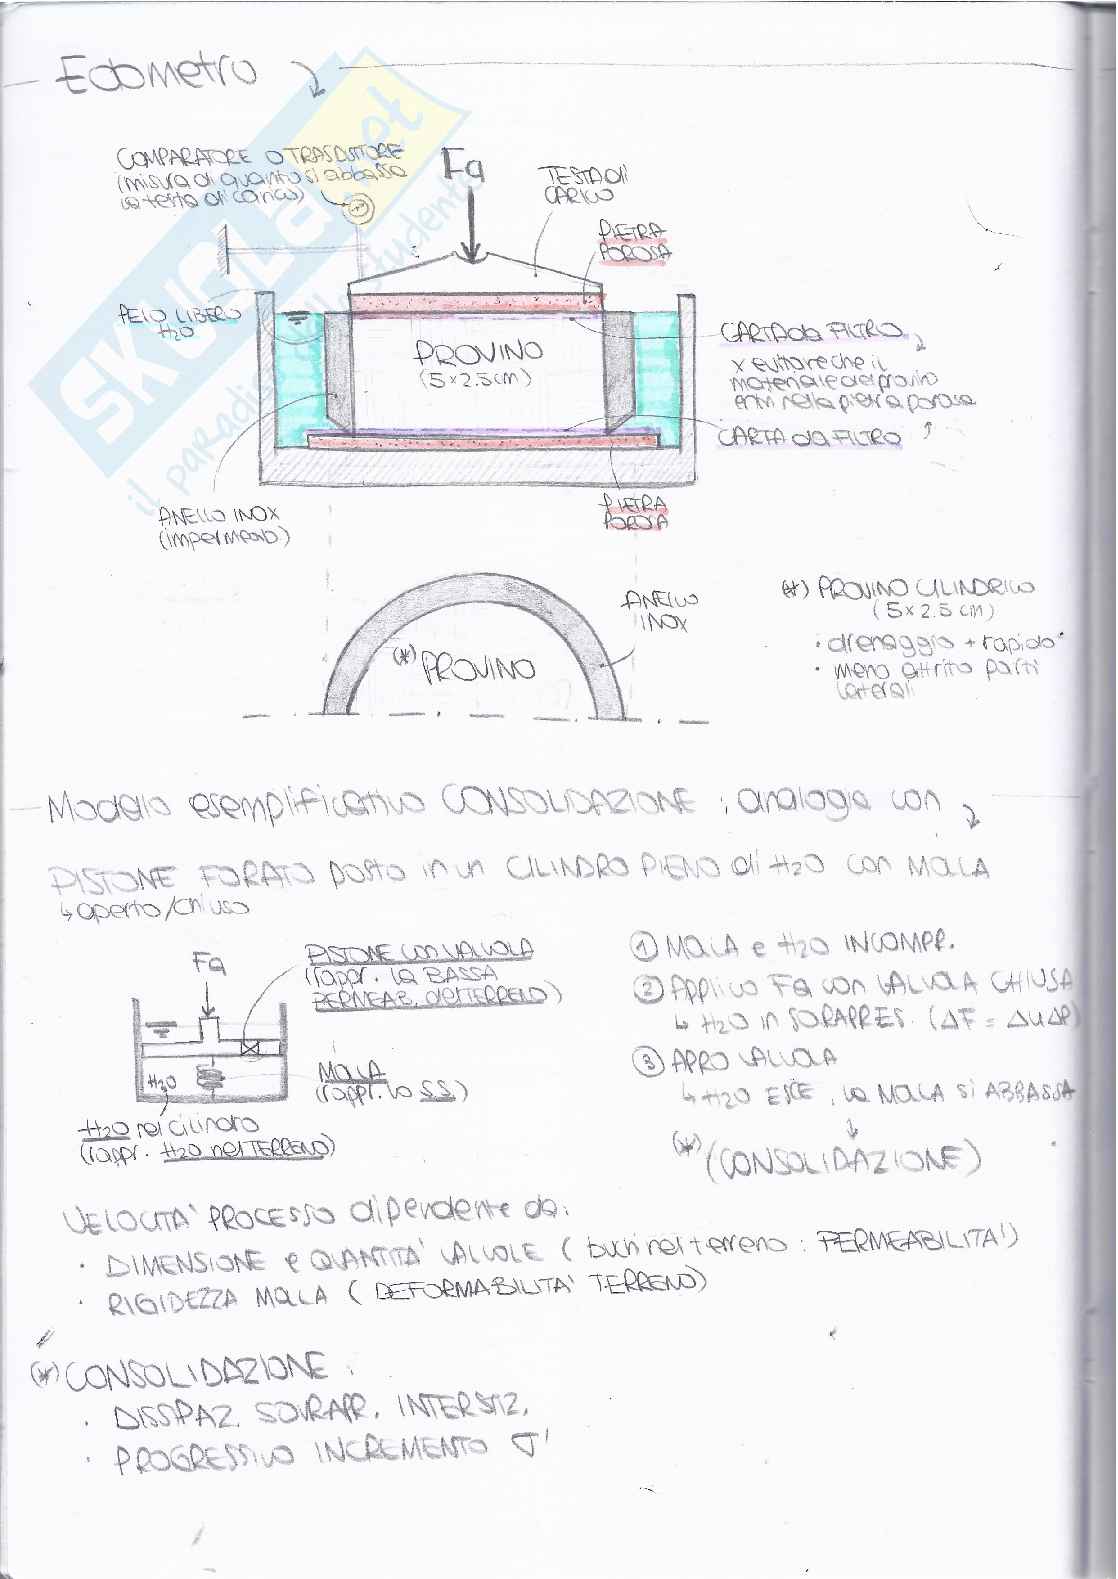 Edometro
COMPARATORE O TRASDUTTORE
(misura di quanto si abbassa
la testa di carico)
Fa
TESTA di
CARICO
PIETRA
POROSA
PELO LIBERO
H2O
PROVINO
(5x2.5cm)
CARTA da FILTRO
x evitare che il
materiale del provino
entri nella pietra porosa
CARTA da FILTRO
ANELLO INOX
(impermeab.)
PIETRA
POROSA
ANELLO
INOX
(*) PROVINO
(*) PROVINO CILINDRICO
(5x2.5cm)
· drenaggio + rapido
· meno attrito parti
laterali
Modello esemplificativo CONSOLIDAZIONE : analogia con
PISTONE FORATO posto in un CILINDRO PIENO di H2O con MOLLA
↳ aperto/chiuso
Fa
PISTONE con VALVOLA
(rappr. la BASSA
PERMEAB. del TERRENO)
H2O
MOLLA
(rappr. lo S.S.)
H2O nel cilindro
(rappr. H2O nel TERRENO)
① MOLLA e H2O INCOMPR.
② APPLICO Fa con VALVOLA CHIUSA
↳ H2O in SOVRAPRES. (ΔF = Δu ΔP)
③ APRO VALVOLA
↳ H2O ESCE, la MOLLA SI ABBASSA
(*) (CONSOLIDAZIONE)
VELOCITA' PROCESSO dipendente da:
· DIMENSIONE e QUANTITA' VALVOLE (buchi nel terreno : PERMEABILITA')
· RIGIDEZZA MOLLA (DEFORMABILITA' TERRENO)
(*) CONSOLIDAZIONE :
· DISSIPAZ. SOVRAPP. INTERSTIZ.
· PROGRESSIVO INCREMENTO σ'
SKUOLA.net
il paradiso dello studente